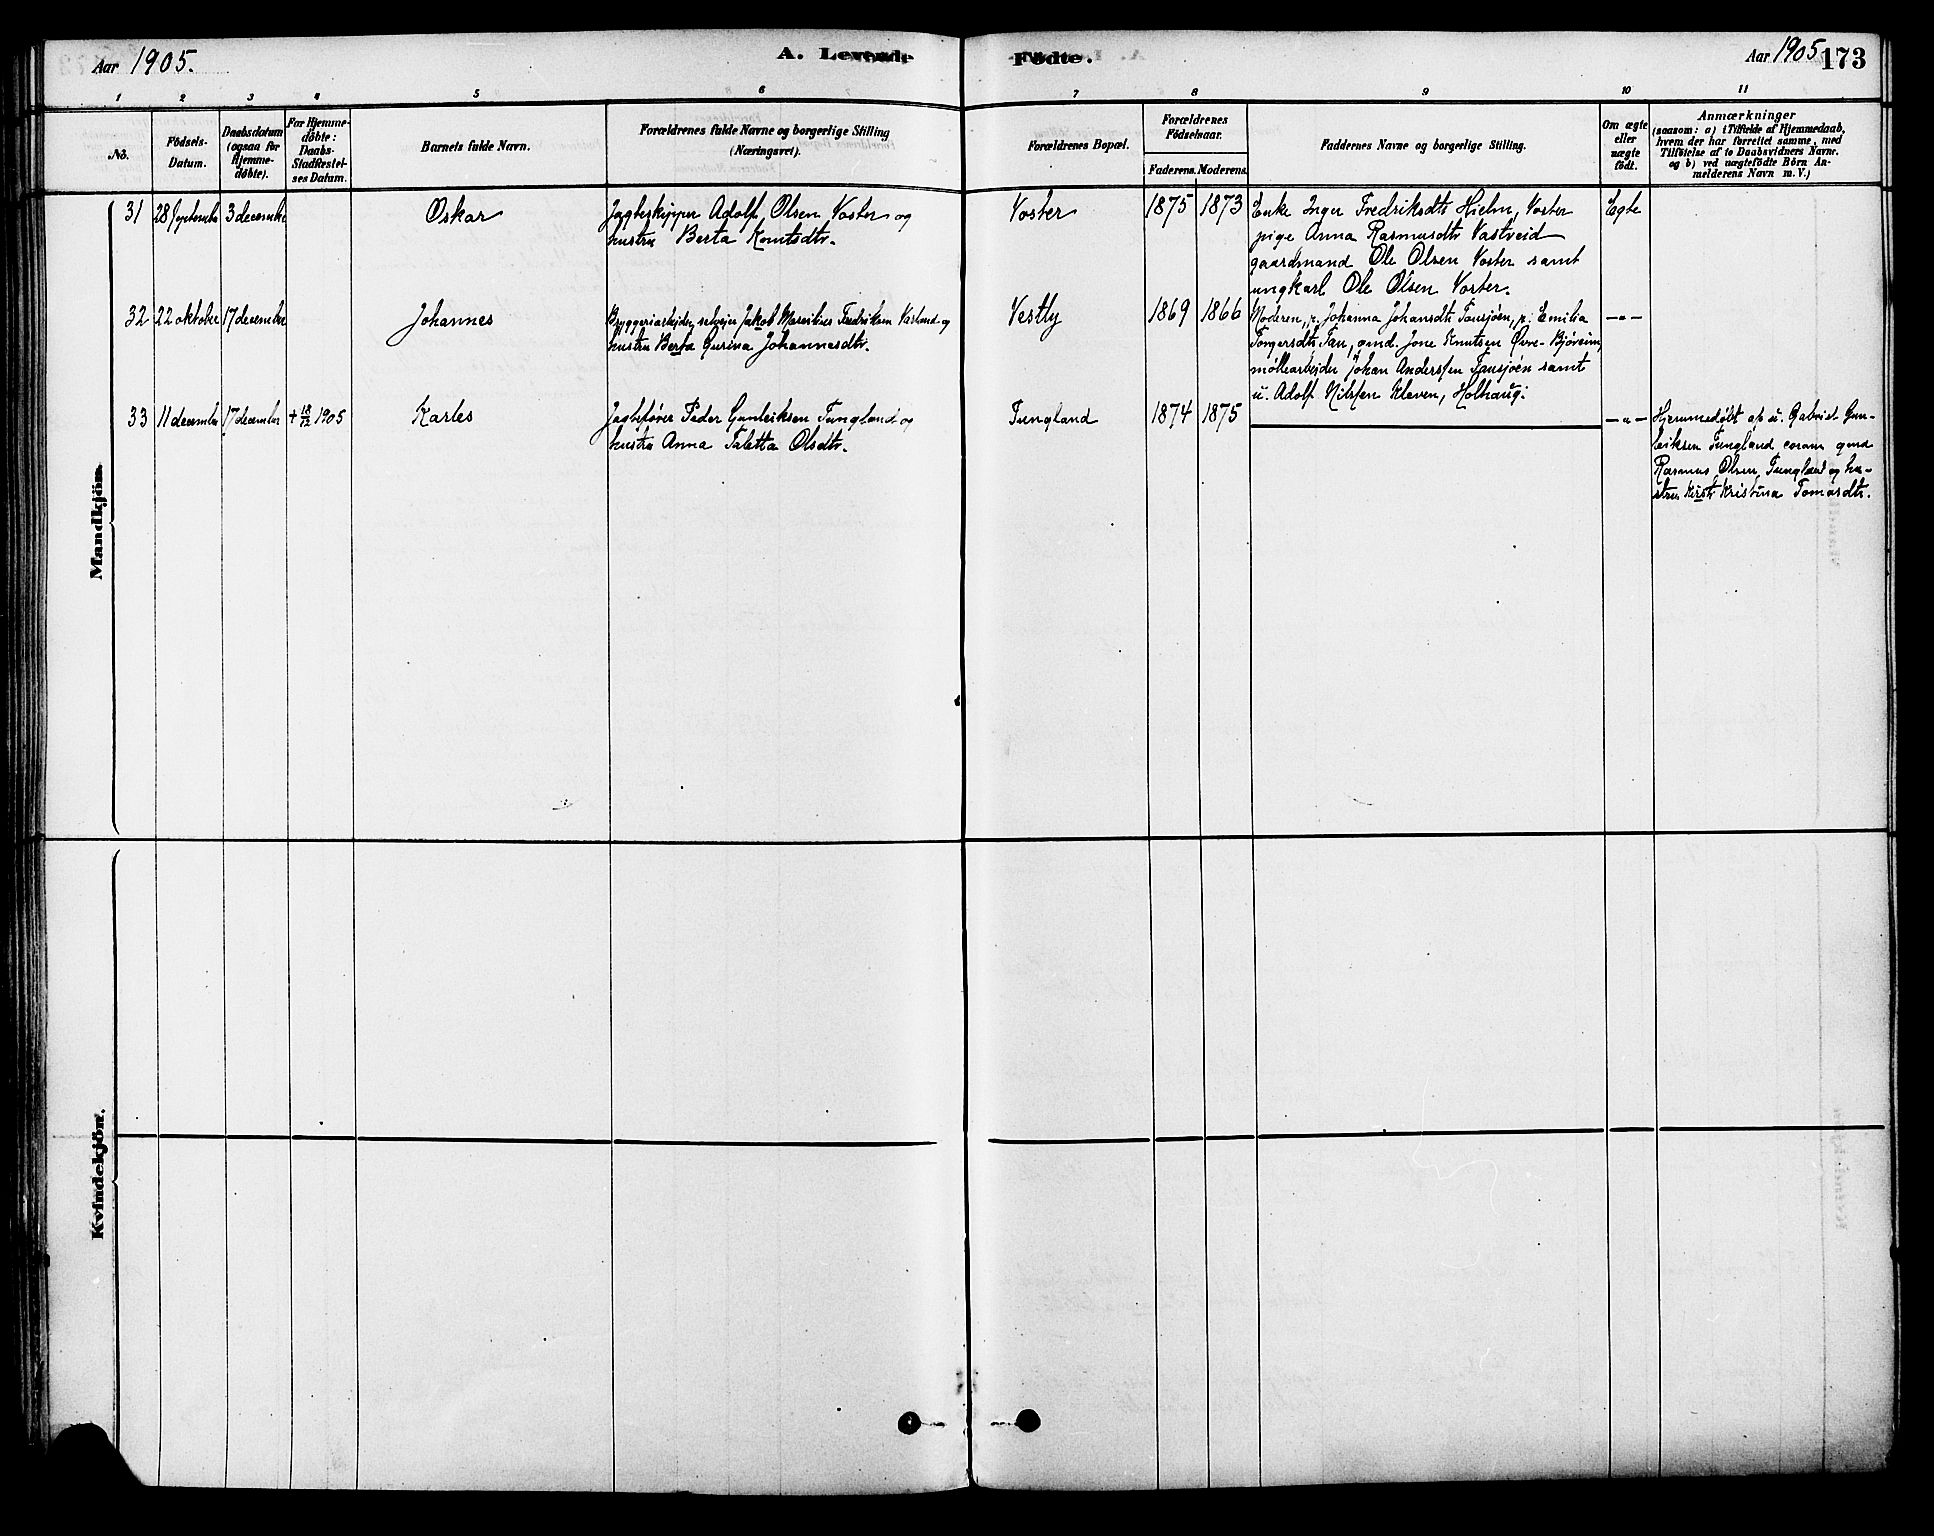 Aar 1905.
A. Levende Födte.
Aar 1905
173
1 2 3 4 5 6 7 8 9 10 11
No.
Födsels-
Datum.
Daabsdatum
(ogsaa for
Hjemme-
döbte).
For Hjemme-
döbte:
Daabs-
Stadfæstel-
ses Datum.
Barnets fulde Navn.
Forældrenes fulde Navne og borgerlige Stilling
(Næringsvei).
Forældrenes Bopæl.
Forældrenes
Födselsaar.
Faderens. Moderens.
Faddernes Navne og borgerlige Stilling.
Om ægte
eller
uægte
födt.
Anmærkninger
(saasom: a) i Tilfælde af Hjemmedaab,
hvem der har forrettet samme, med
Tilföielse af to Daabsvidners Navne.
og b) ved uægtefödte Börn An-
melderens Navn m. V.)
Mandkjön.
31 28 september 3 december Oskar
Jagteskipper Adolf Olsen Voster og
hustru Berta Knutsdtr.
Voster 1875 1873
Enke Inger Fredriksdtr Hielm, Voster
pige Anna Rasmusdtr Vastveid
gaardmand Ole Olsen Voster samt
ungkarl Ole Olsen Voster.
Egte
32 22 oktober 17 december Johannes
Byggeriarbejder, selvejer Jakob Fredriksen og
hustru Berta Gurina Johannesdtr.
Vestly 1869 1866
Moderen, p. Johanna Johansdtr Tausjøen, p. Emilia
Torgersdtr Tau, gmd. Jone Knutsen Øvre-Bjørheim,
møllearbejder Johan Anderssen Tausjøen samt
u. Adolf Nilssen Kleven, Holhaug.
—„—
33 11 december 17 december + 18/12 1905 Karles
Jagtefører Peder Gunleiksen Tungland og
hustru Anna Taletta Olsdtr.
Tungland 1874 1875
—„—
Hjemmedøbt af u. Gabriel Gun-
leiksen Tungland coram gmd
Rasmus Olsen Tungland og hu-
stru Kristina Tomasdtr.
Kvindekjön.